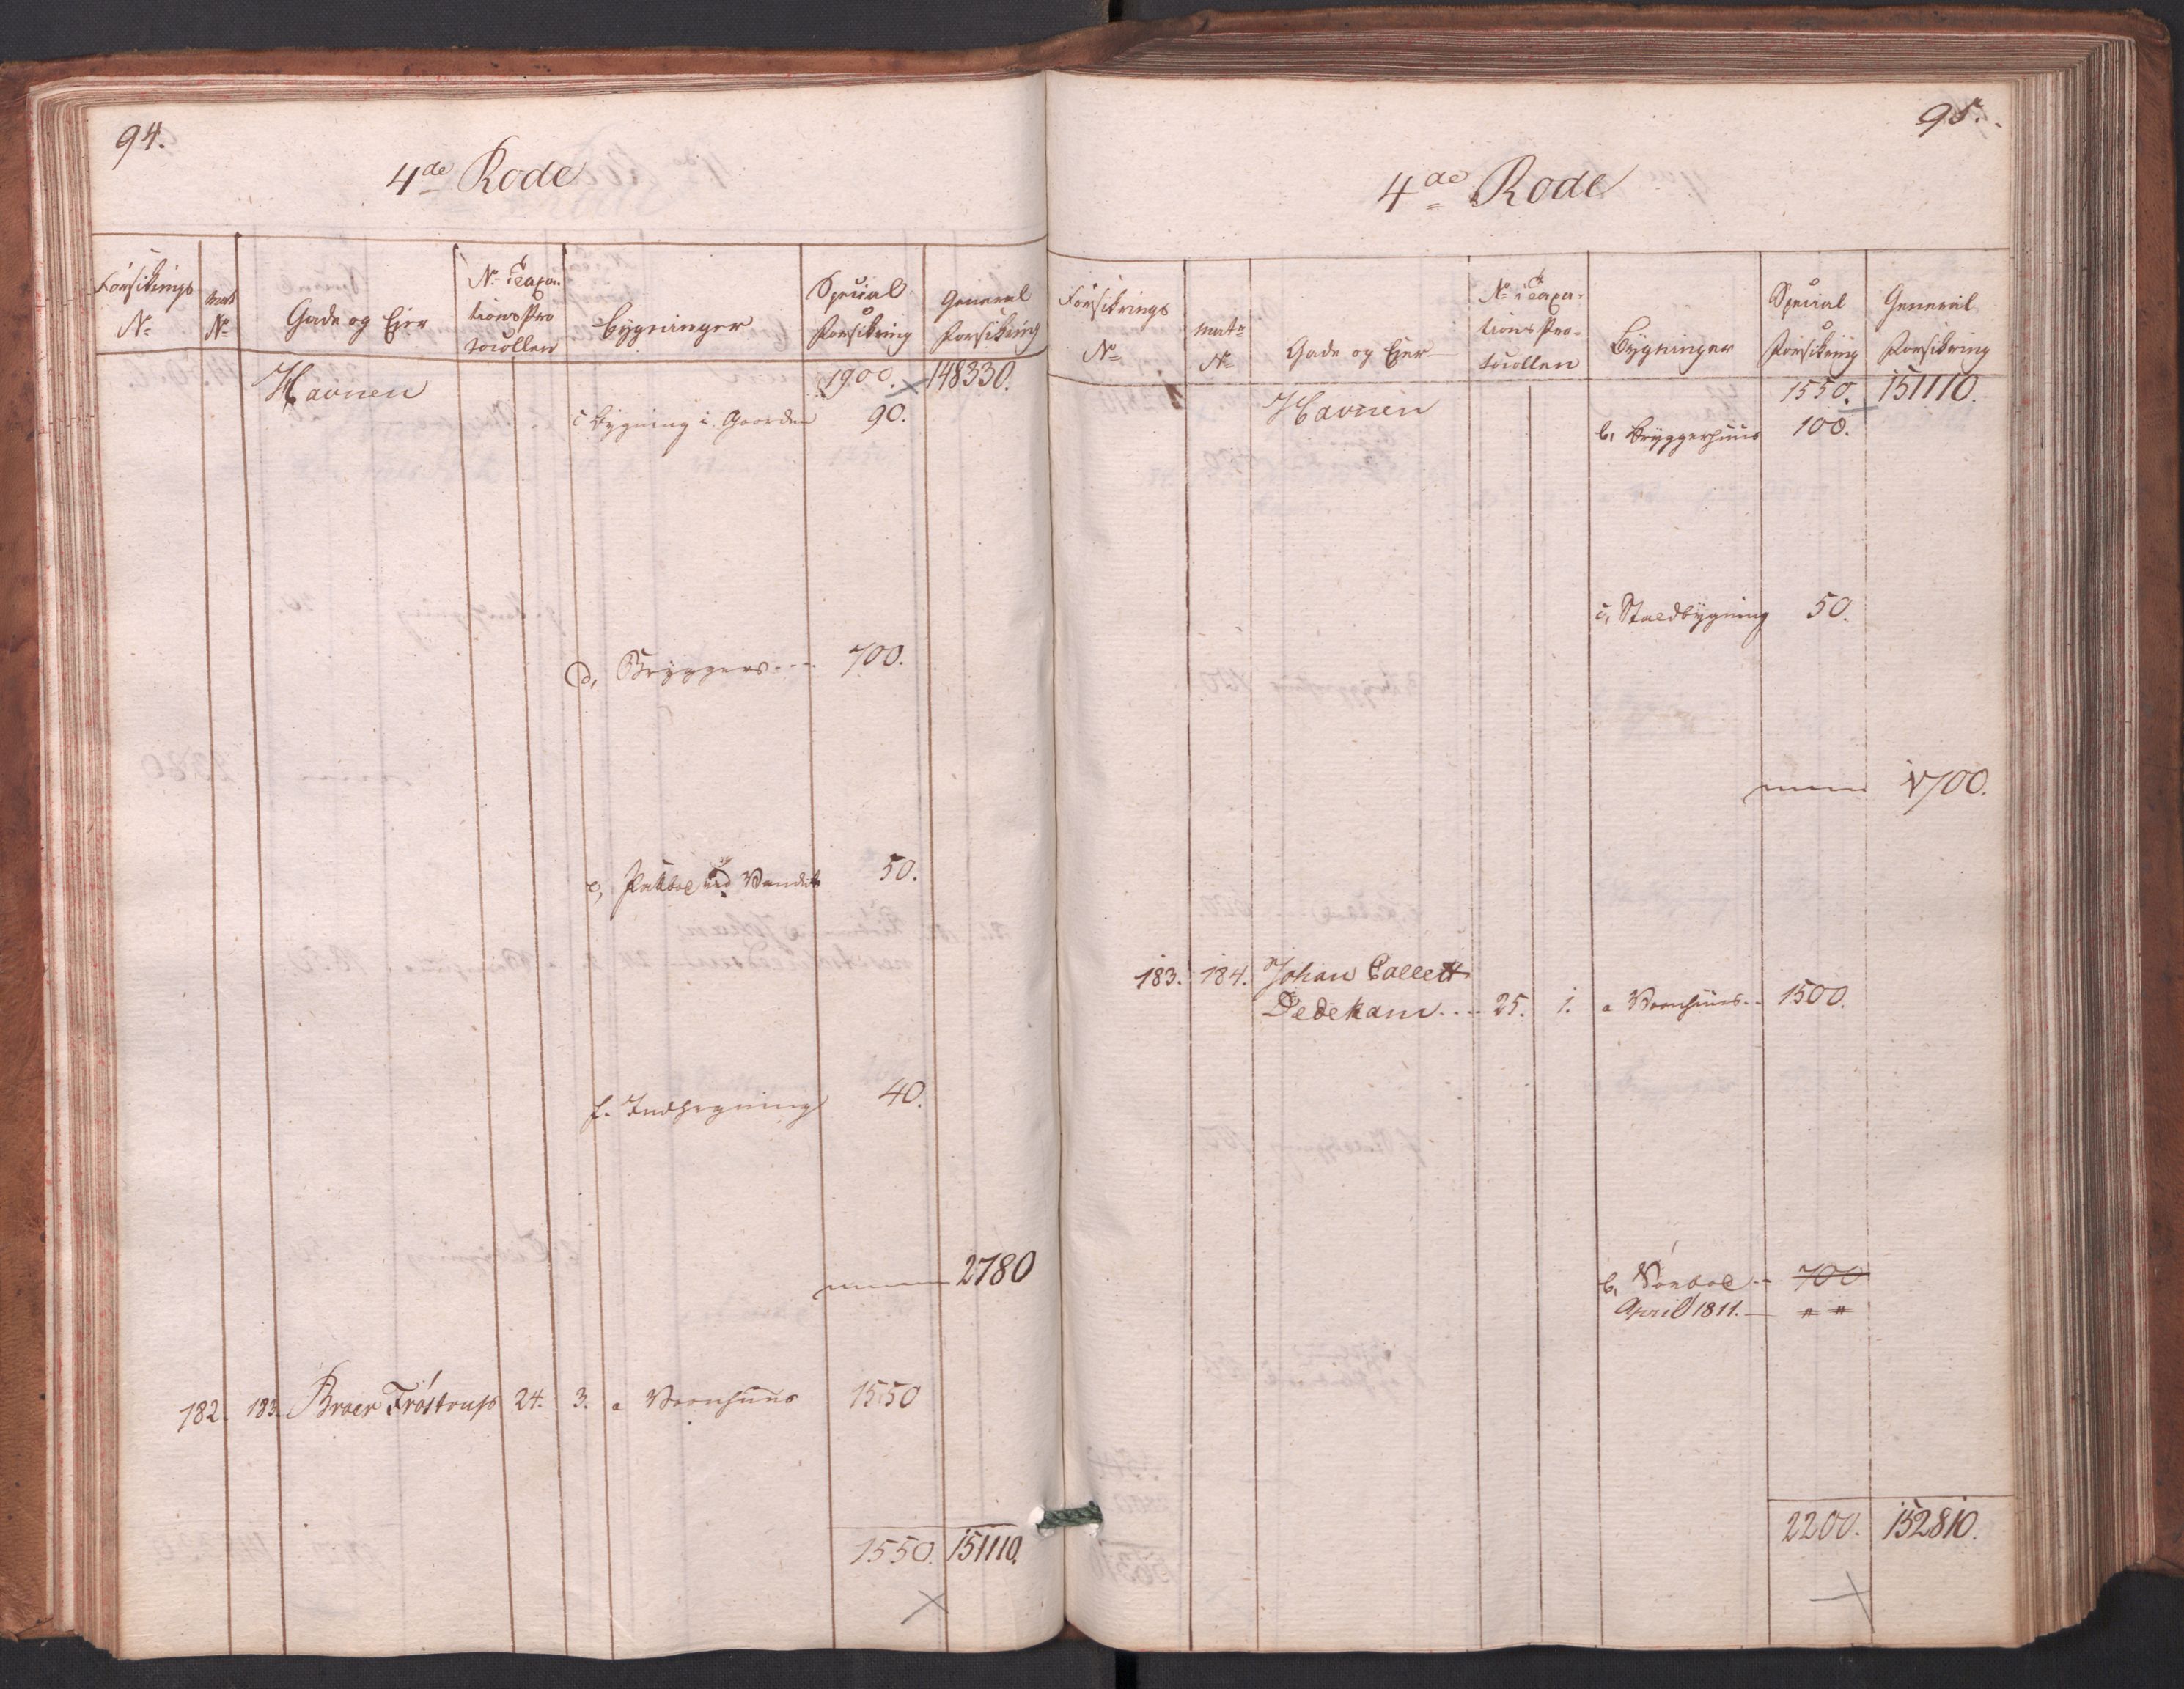 94.
4de Rode
Forsikrings No
Mat No
Gade og Ejer
No i Taxationsprotocollen
Bygninger
Special Forsikring
General Forsikring
Havnen 1900. 148330.
c Bygning i Gaarden 90.
d, Bryggers ---- 700.
e, Pakboe ved Vandet 50.
f. Indhegning 40.
2780
182. 183. Broer Fröstrup 24. 3. a Vaanhuus 1550
1550. 151110.
95.
4de Rode
Forsikrings No
Matr No
Gade og Ejer
No i Taxationsprotocollen
Bygninger
Special Forsikring
General Forsikring
Havnen 1550. 151110.
b, Bryggerhuus 100.
c, Staldbygning 50.
1700.
183. 184. Johan Collett
Dedekam .... 25. 1. a Vaanhuus .. 1500.
b, Söeboe -- 700
April 1811. — " "
2200. 152810.